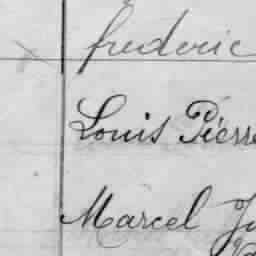 frederic
Louis Pierre
Marcel